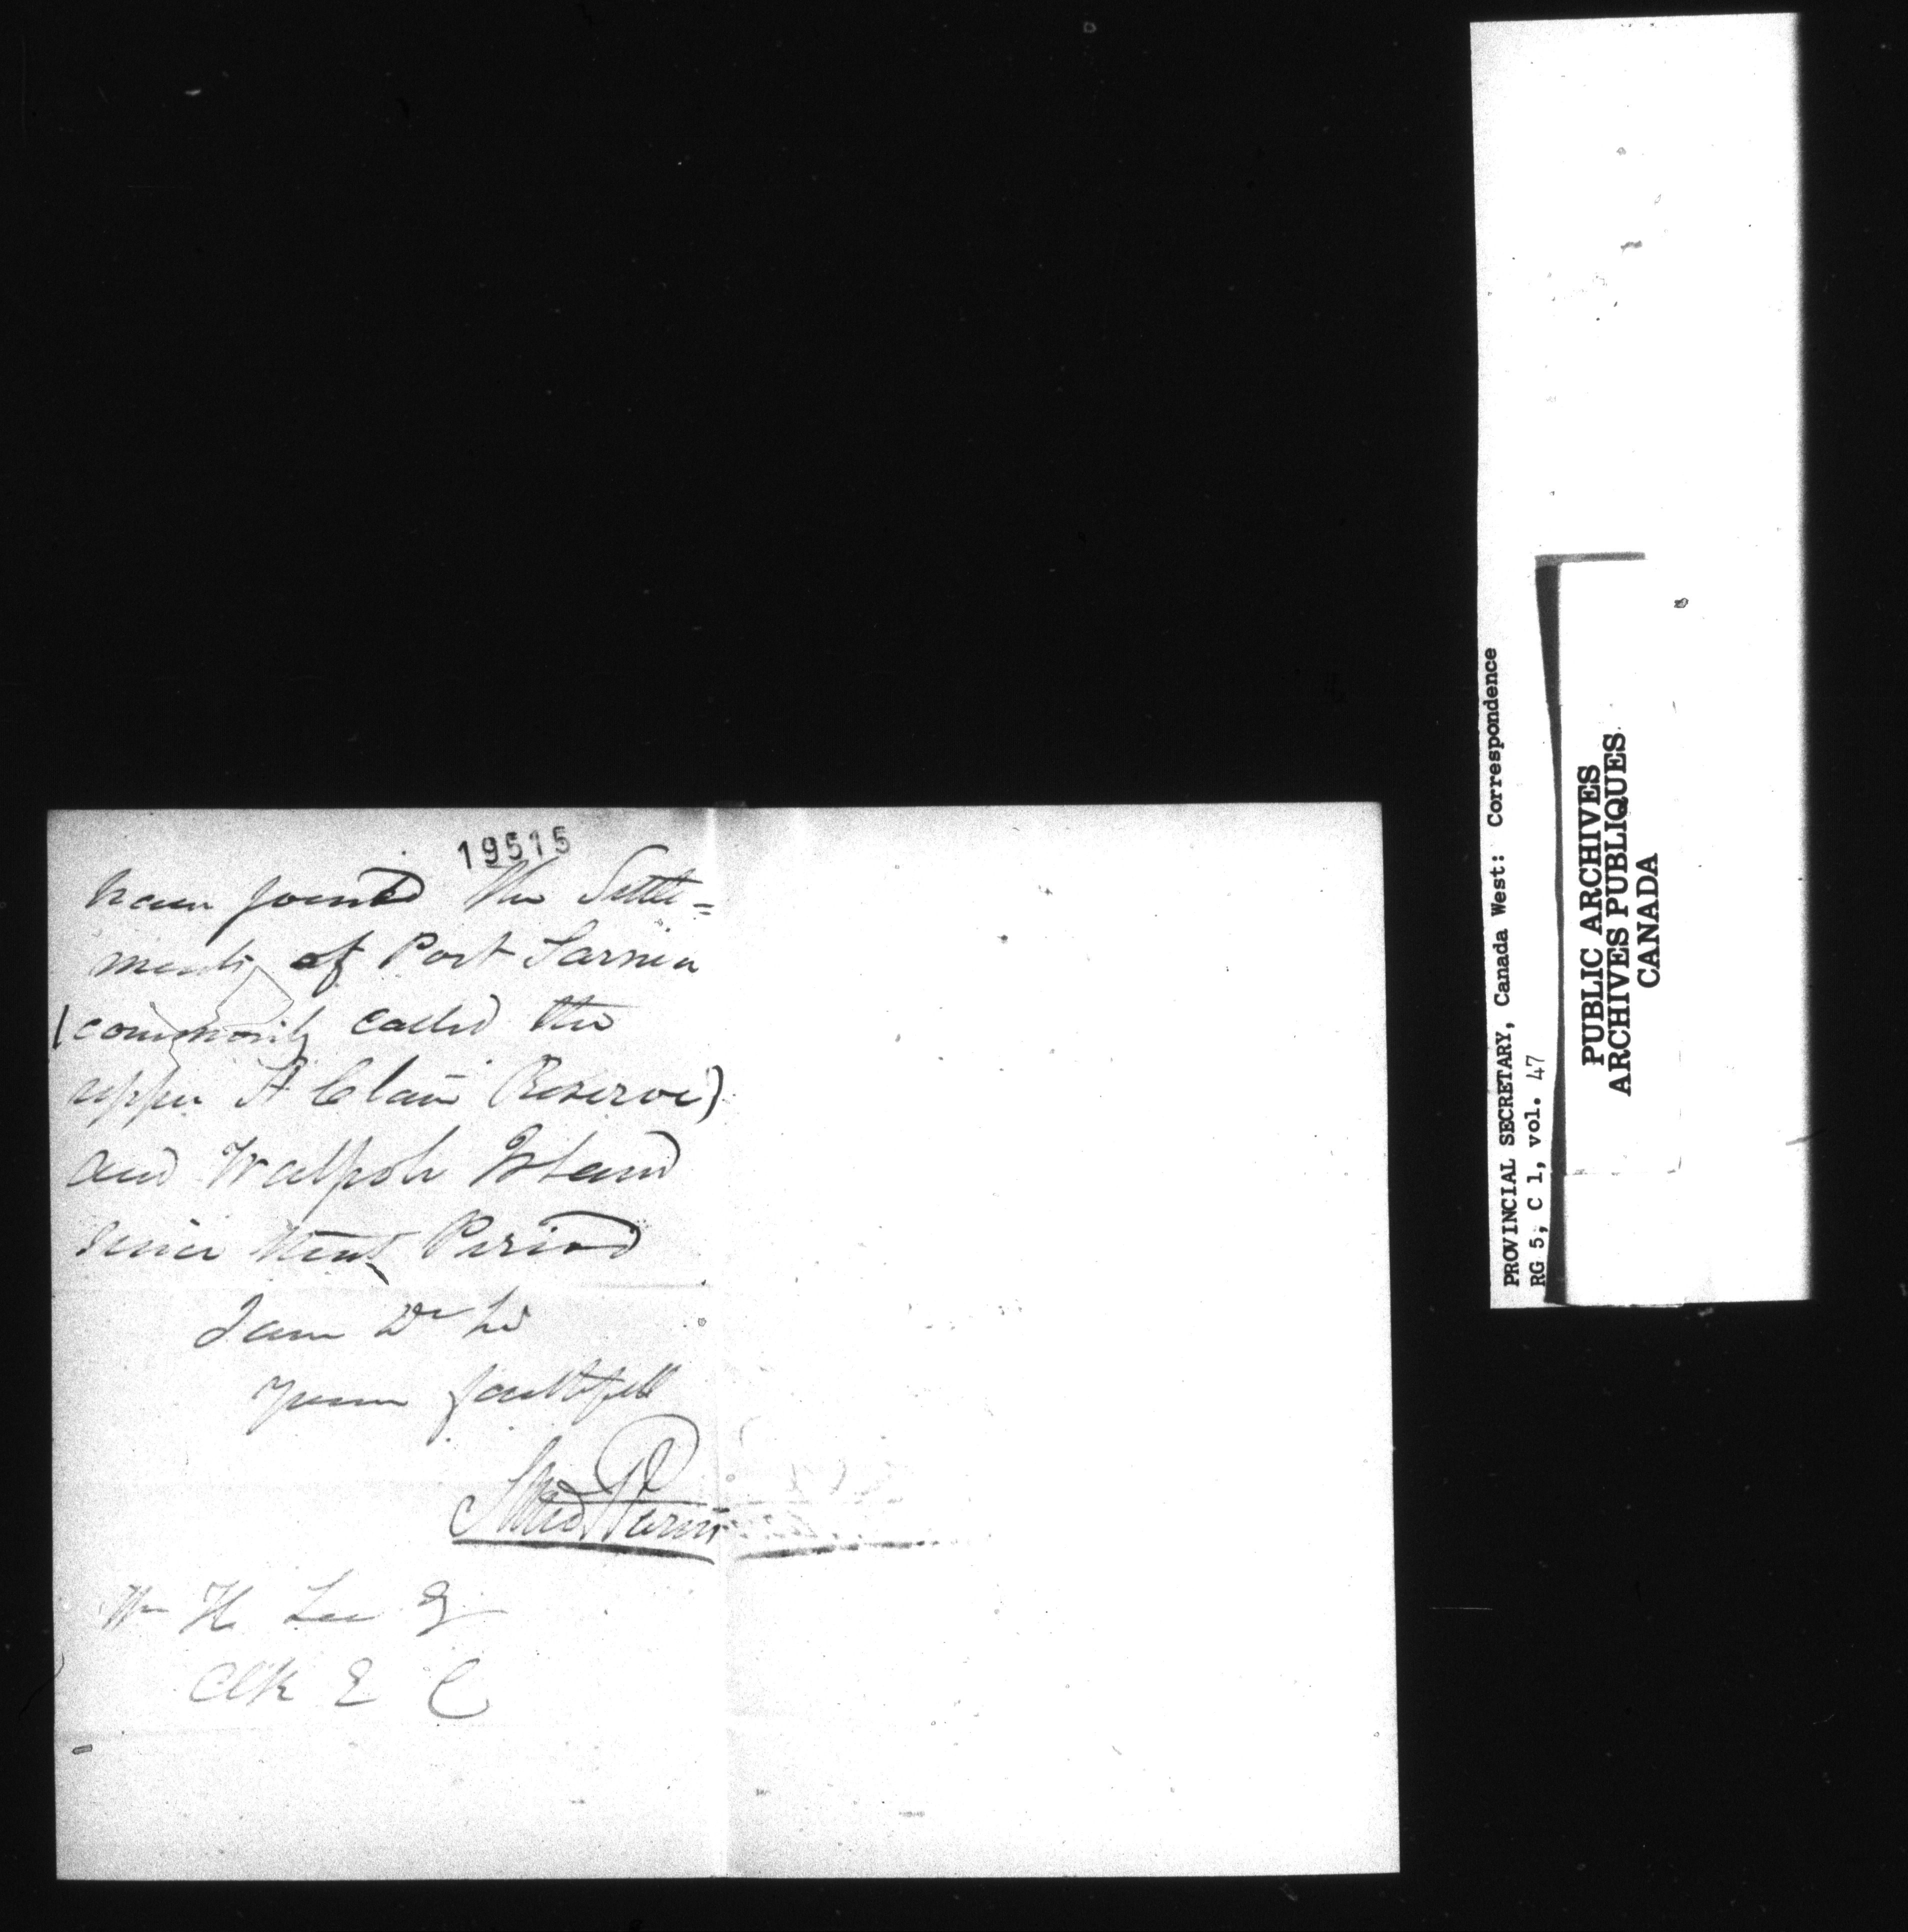 19515
have joined the Settle=
ments of Port Sarnia
(commonly called the
upper St Clair Reserve)
and Walpole Island
since that Period
I am Dr Sir
Yours faithfull
Wm H Lee Esq
Clk E C
PROVINCIAL SECRETARY, Canada West: Correspondence
RG 5, C 1, vol. 47
PUBLIC ARCHIVES
ARCHIVES PUBLIQUES
CANADA